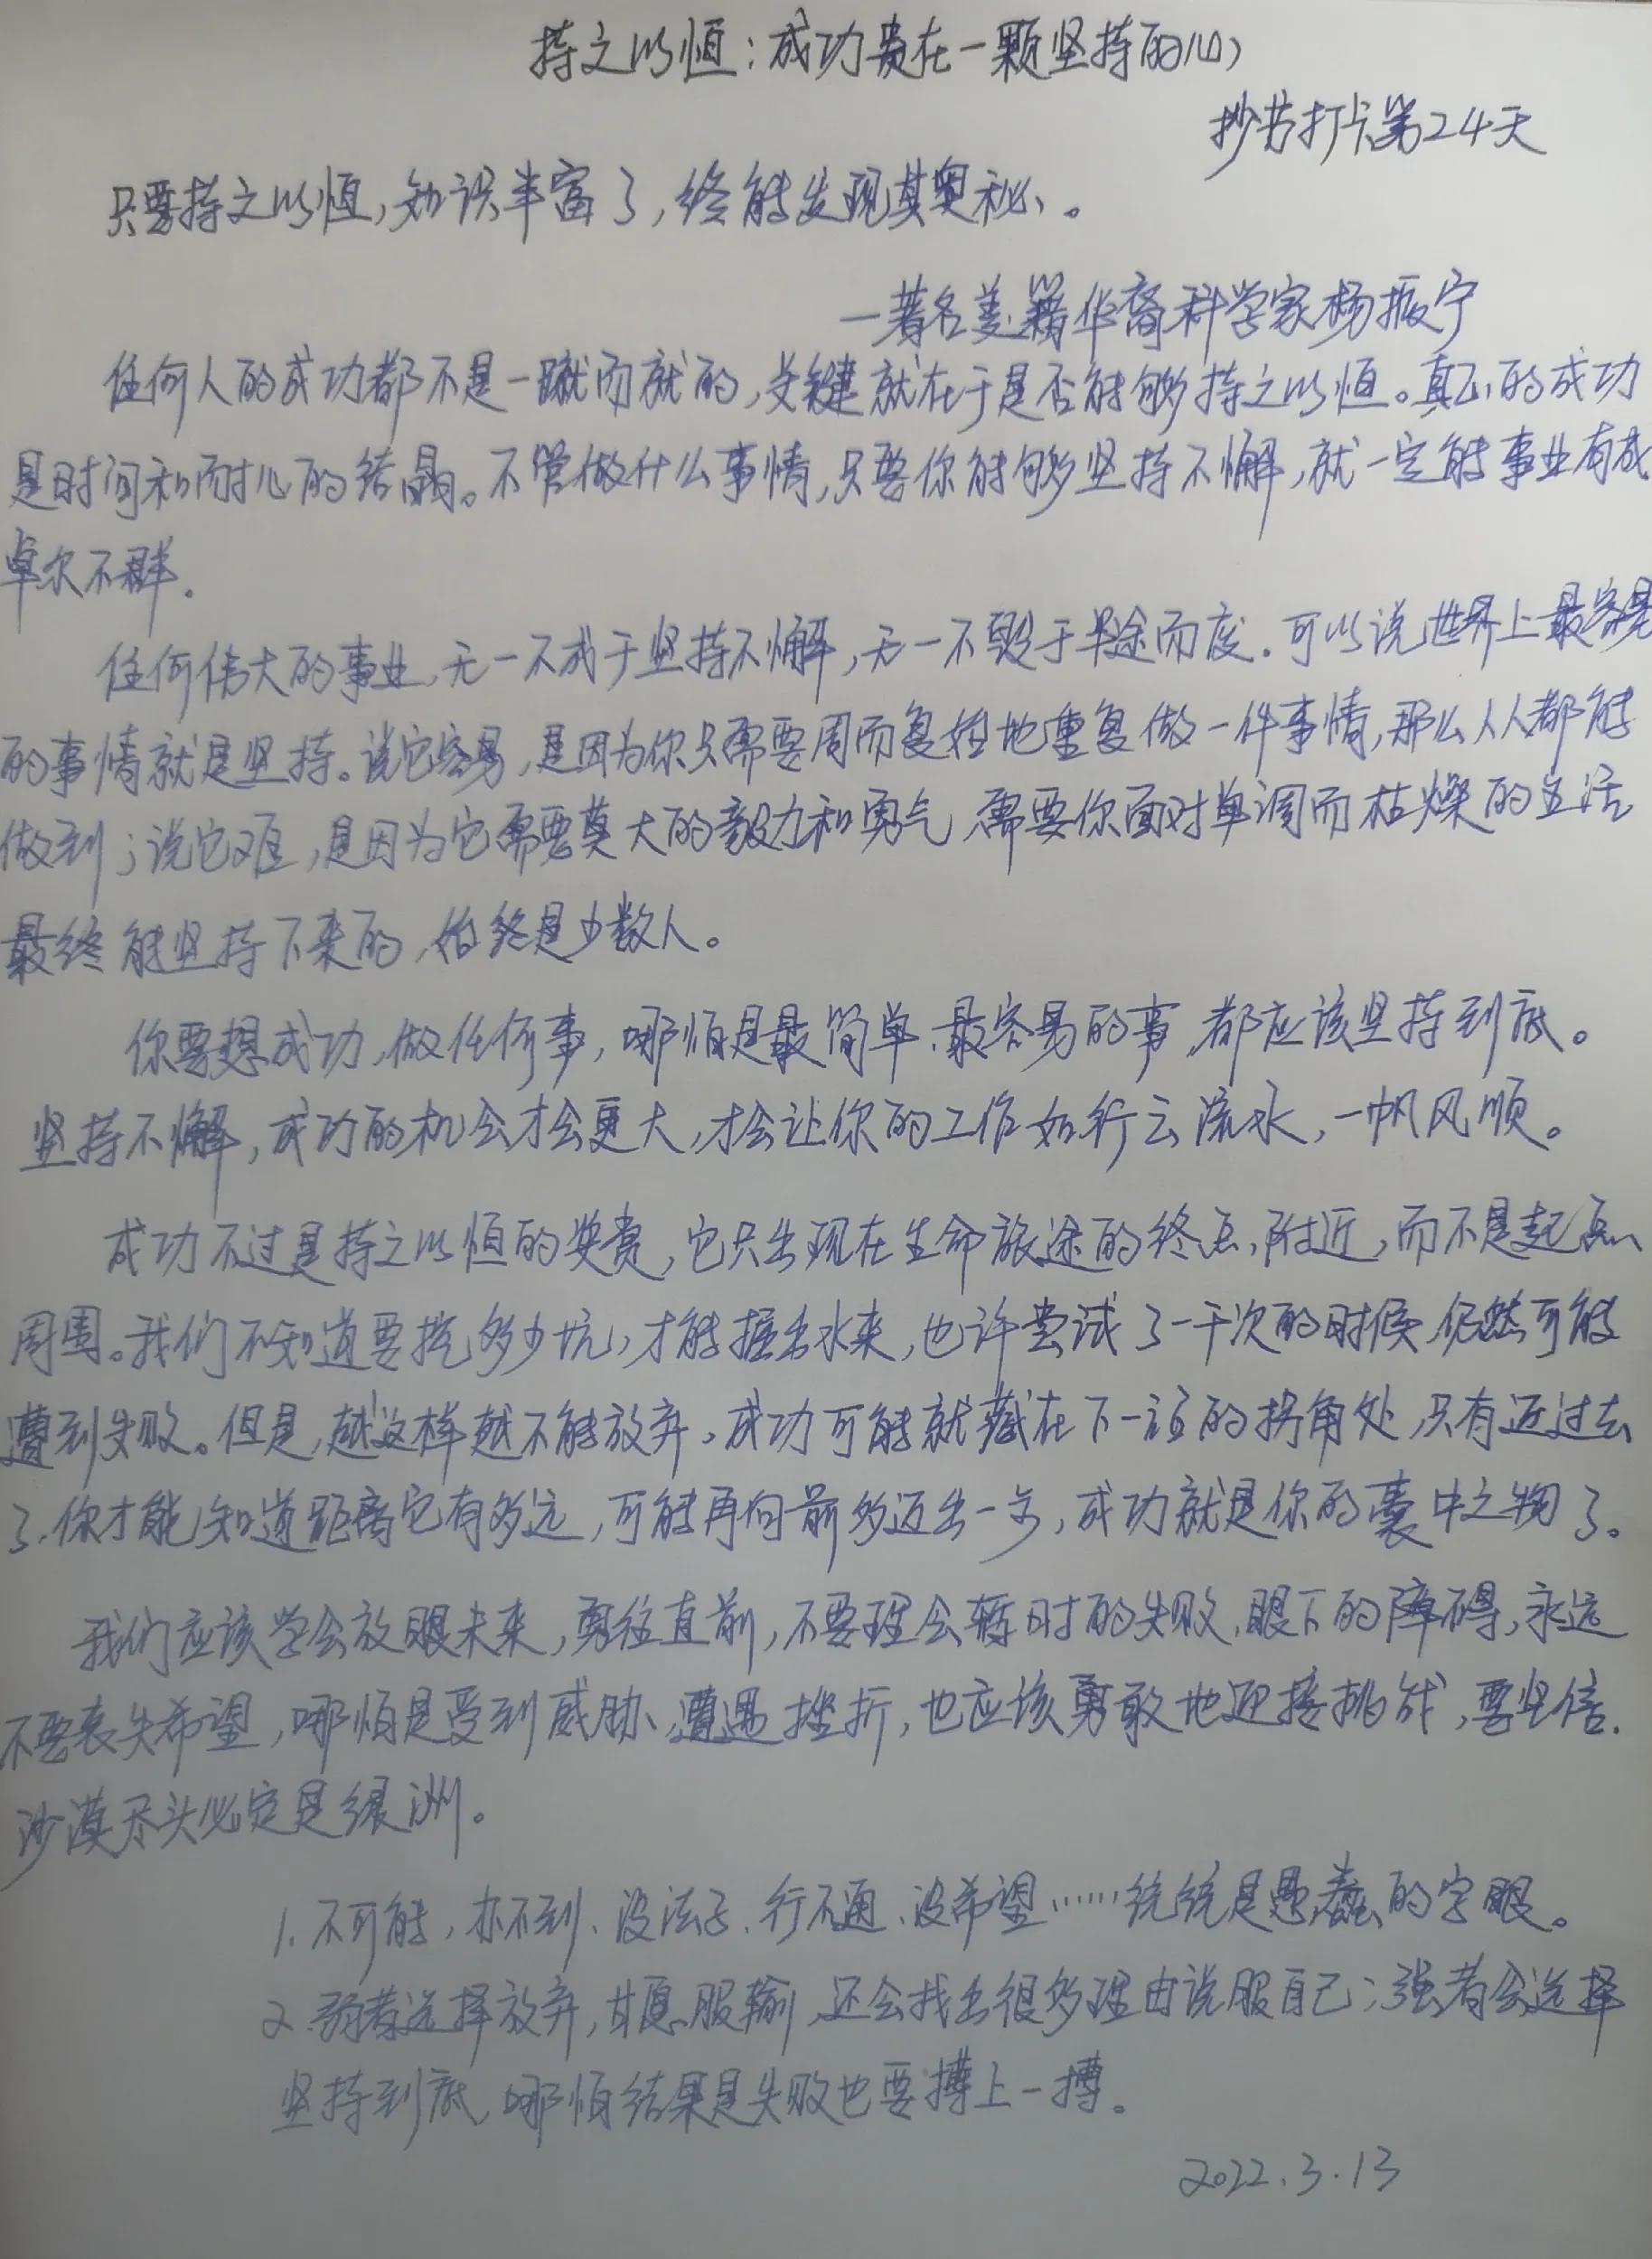 持之以恒：成功贵在一颗坚持的心
抄书打卡第24天
只要持之以恒，知识丰富了，终能发现其奥秘。
—著名美籍华裔科学家杨振宁
任何人的成功都不是一蹴而就的，关键就在于是否能够持之以恒。真正的成功
是时间和耐心的结晶。不管做什么事情，只要你能够坚持不懈，就一定能事业有成
卓尔不群.
任何伟大的事业，无一不成于坚持不懈，无一不毁于半途而废.可以说世界上最容易
的事情就是坚持。说它容易，是因为你只需要周而复始地重复做一件事情，那么人人都能
做到；说它难，是因为它需要莫大的毅力和勇气，需要你面对单调而枯燥的生活
最终能坚持下来的，始终是少数人。
你要想成功，做任何事，哪怕是最简单、最容易的事，都应该坚持到底。
坚持不懈，成功的机会才会更大，才会让你的工作如行云流水，一帆风顺。
成功不过是持之以恒的奖赏，它只出现在生命旅途的终点附近，而不是起点
周围。我们不知道要挖多少坑，才能握出水来，也许尝试了一千次的时候，仍然可能
遭到失败。但是，越这样越不能放弃，成功可能就藏在下一该的拐角处，只有迈过去
了，你才能知道距离它有多远，可能再向前多迈出一步，成功就是你的囊中之物了。
我们应该学会放眼未来，勇往直前，不要理会暂时的失败，眼下的障碍，永远
不要丧失希望，哪怕是受到威胁、遭遇挫折，也应该勇敢地迎接挑战，要坚信.
沙漠尽头必定是绿洲。
1.不可能，办不到、没法子、行不通、没希望……统统是愚蠢的字眼。
2.弱者选择放弃，甘愿服输，还会找出很多理由说服自己；强者会选择
坚持到底，哪怕结果是失败也要搏上一搏。
2022.3.13